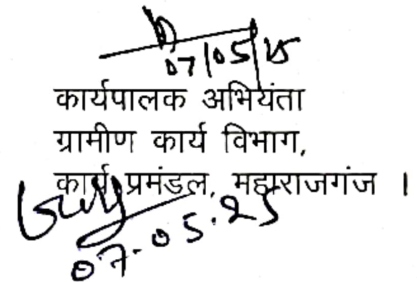 07/05/25
कार्यपालक अभियंता
ग्रामीण कार्य विभाग,
कार्य प्रमंडल, महाराजगंज ।
07.05.25